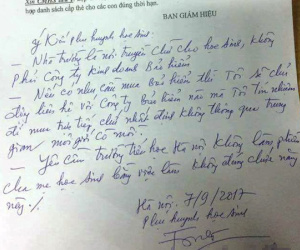 hợp danh sách cấp thẻ cho các con đúng thời hạn.
BAN GIÁM HIỆU
Ý Kiến phụ huynh học sinh:
- Nhà trường là nơi truyền chữ cho học sinh, không
phải Công ty kinh doanh Bảo hiểm
- Nếu có nhu cầu mua Bảo hiểm thì Tôi sẽ chủ
động liên hệ với Công ty Bảo hiểm nào mà Tôi tín nhiệm
để mua trực tiếp, chứ nhất định không thông qua trung
gian môi giới cò mồi.
- Yêu cầu trường tiểu học Hà Nội không làm phiền
cha mẹ học sinh bằng việc làm không đúng chức năng
này./.
Hà nội. 7/9/2017
Phụ huynh học sinh